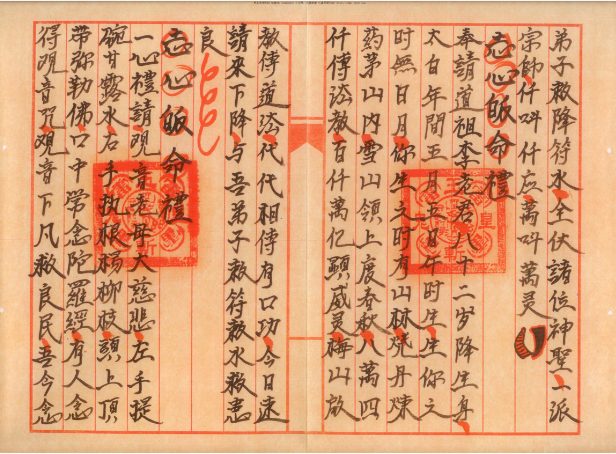 弟子救降符水全伏諸位神聖一派
宗師仟叫仟应萬叫萬灵
志心皈命禮
奉請道祖李老君八十二岁降生身
太白年間五月五日午时生生你之
时無日月你生之时有山林燒丹煉
药茅山內雪山領上度春秋八萬四
仟傳法教百仟萬亿顕威灵梅山啟
教傳道法代代祖傳有口功今日速
請来下降与吾弟子救符救水救患
良
志心皈命禮
一心禮請观音老母大慈悲左手提
碗甘露水右手执根楊柳枝頭上頂
带弥勒佛口中常念陀羅經有人念
得观音咒观音下凡救良民吾今念